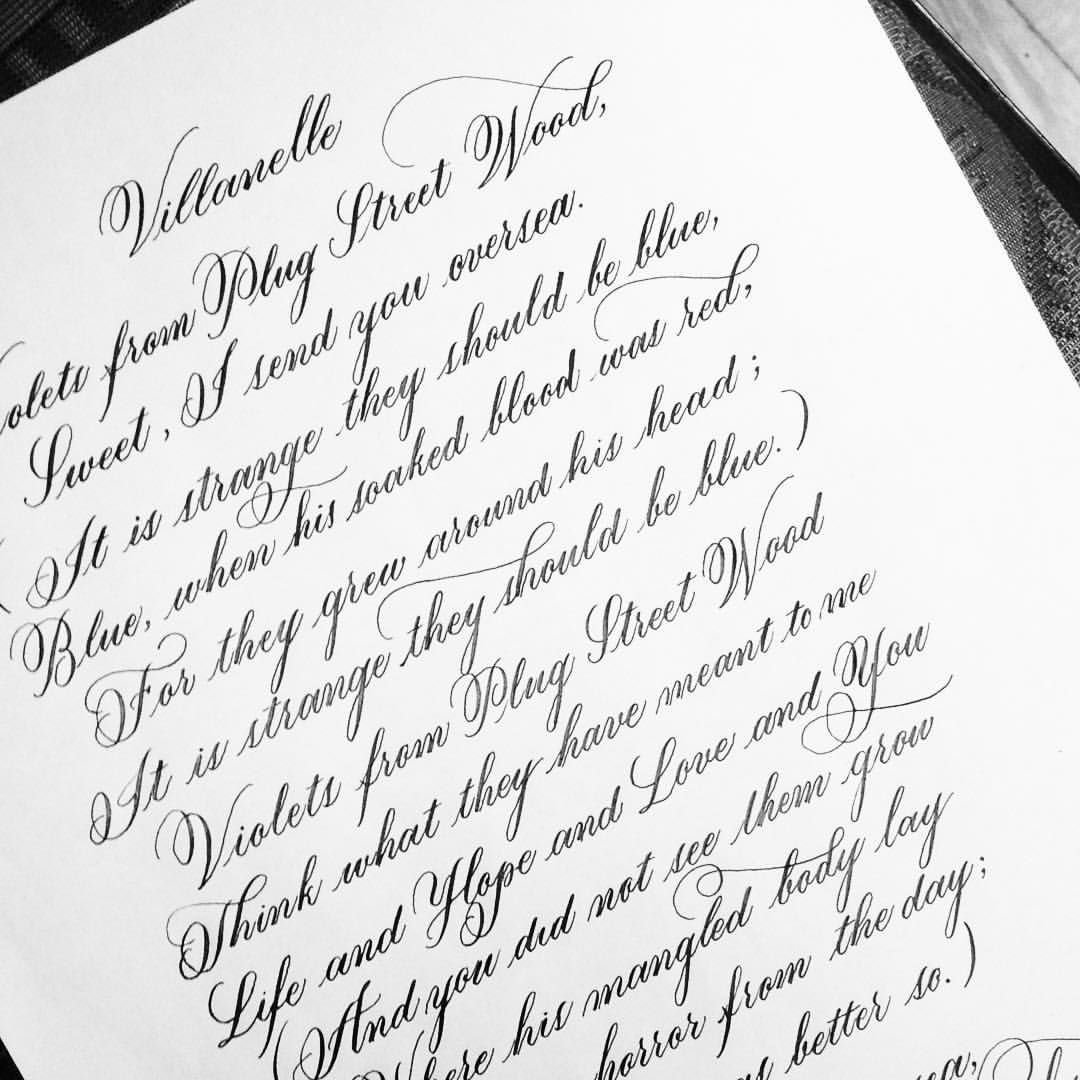 Villanelle
olets from Plug Street Wood,
Sweet, I send you oversea.
(It is strange they should be blue,
Blue, when his soaked blood was red,
For they grew around his head;
It is strange they should be blue.)
Violets from Plug Street Wood
Think what they have meant to me
Life and Hope and Love and You
(And you did not see them grow
here his mangled body lay
horror from the day;
better so.)